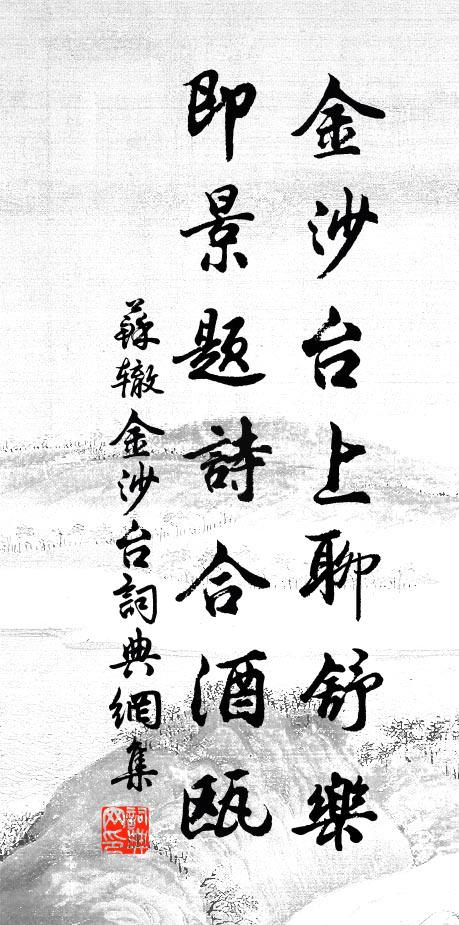 金沙台上聊舒樂
即景題詩合酒瓯
蘇辙金沙台詞典網集